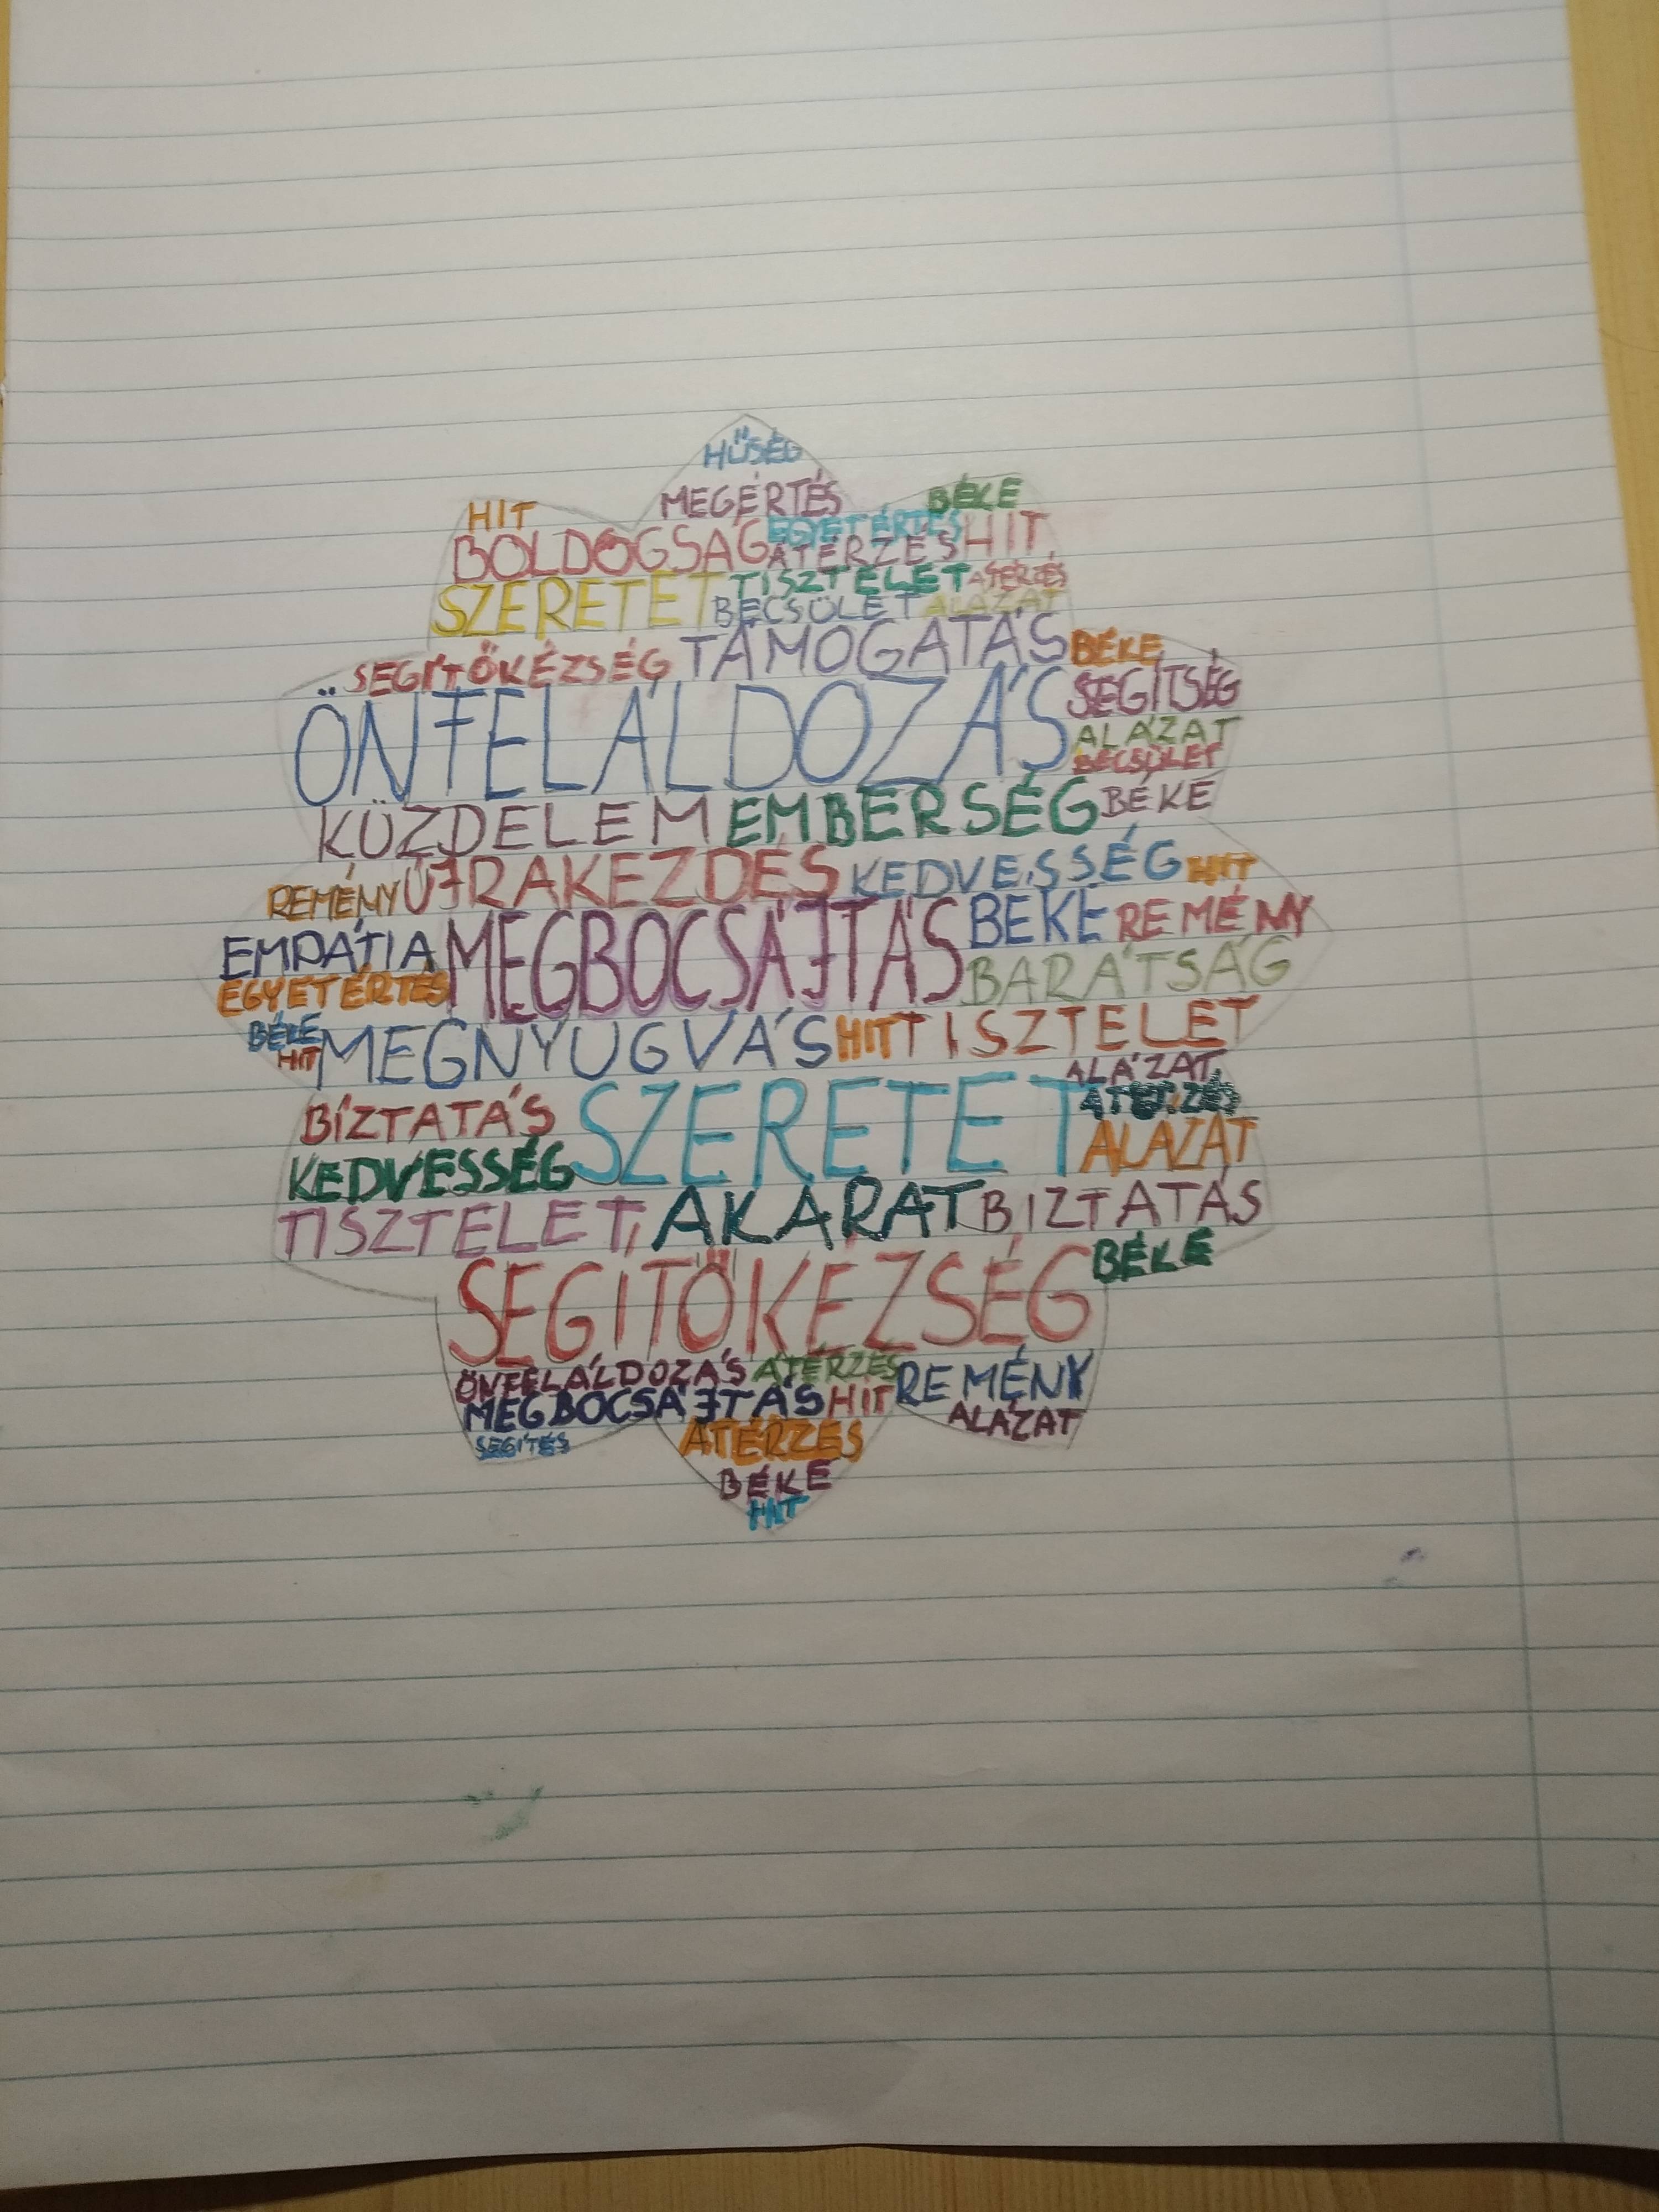 HŰSÉG
MEGÉRTÉS BÉKE
HIT EGYETÉRTÉS HIT,
BOLDOGSÁG ÁTÉRZÉS
SZERETET TISZTELET ÁTÉRZÉS
BECSÜLET ALÁZAT
SEGÍTŐKÉZSÉG TÁMOGATÁS BÉKE
ÖNFELÁLDOZÁS SEGÍTSÉG
ALÁZAT
BECSÜLET
KÜZDELEM EMBERSÉG BÉKE
REMÉNY ÚJRAKEZDÉS KEDVESSÉG HIT
EMPÁTIA MEGBOCSÁJTÁS BÉKE REMÉNY
EGYETÉRTÉS BARÁTSÁG
BÉKE MEGNYUGVÁS HIT TISZTELET
HIT
ALÁZAT,
BÍZTATÁS SZERETET ÁTÉRZÉS
KEDVESSÉG ALÁZAT
TISZTELET, AKARAT BIZTATÁS
SEGITŐKÉZSÉG BÉKE
ÖNFELÁLDOZÁS ÁTÉRZÉS REMÉNY
MEGBOCSÁJTÁS HIT ALÁZAT
SEGÍTÉS ÁTÉRZÉS
BÉKE
HIT